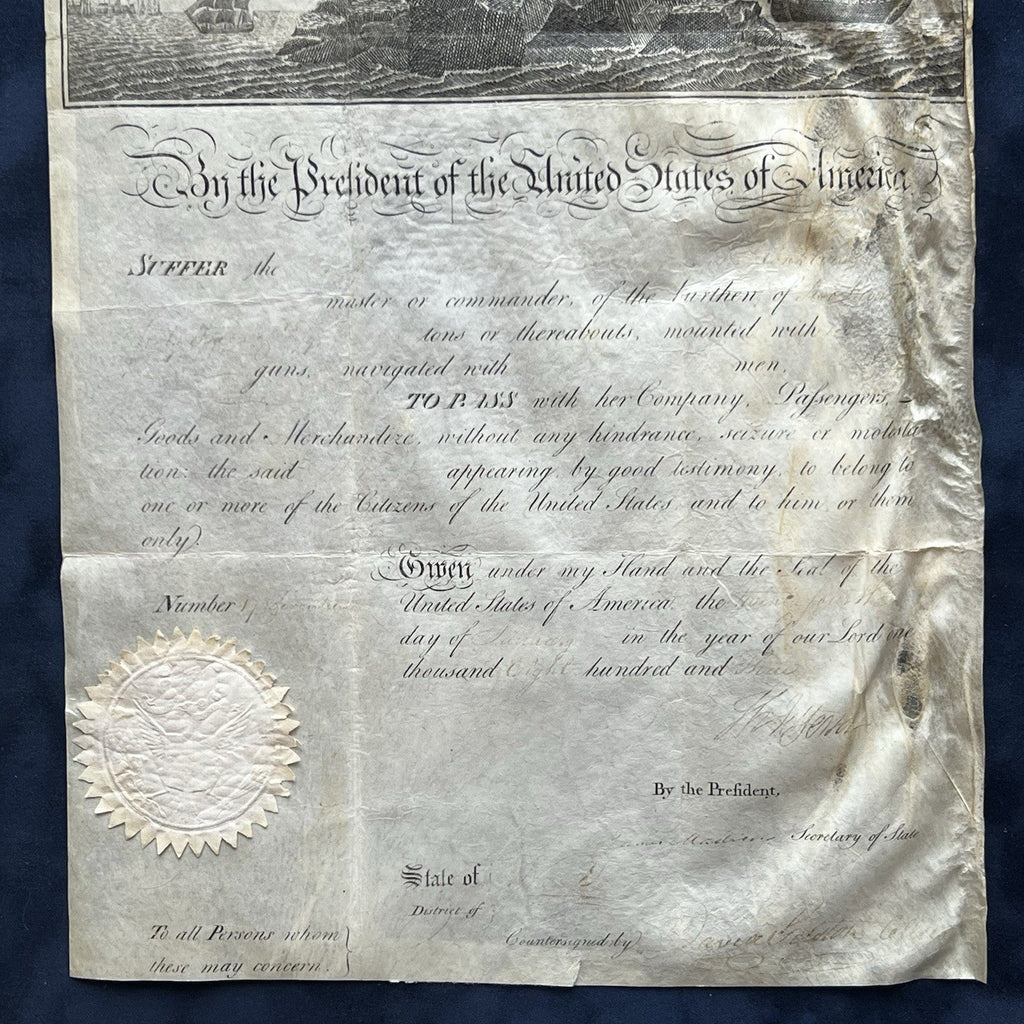 By the Preſident of the United States of America
SUFFER the
master or commander, of the burthen of
tons or thereabouts, mounted with
guns, navigated with men,
TO PASS with her Company, Paſsengers, –
Goods and Merchandize, without any hindrance, seizure or molesta
tion: the said appearing by good testimony, to belong to
one or more of the Citizens of the United States, and to him or them
only.
Given under my Hand and the Seal of the
Number
United States of America, the
day of January in the year of our Lord one
thousand Eight hundred and three
Th Jefferson
By the Preſident,
James Madison Secretary of State
State of
District of
Countersigned by
To all Persons whom
these may concern.